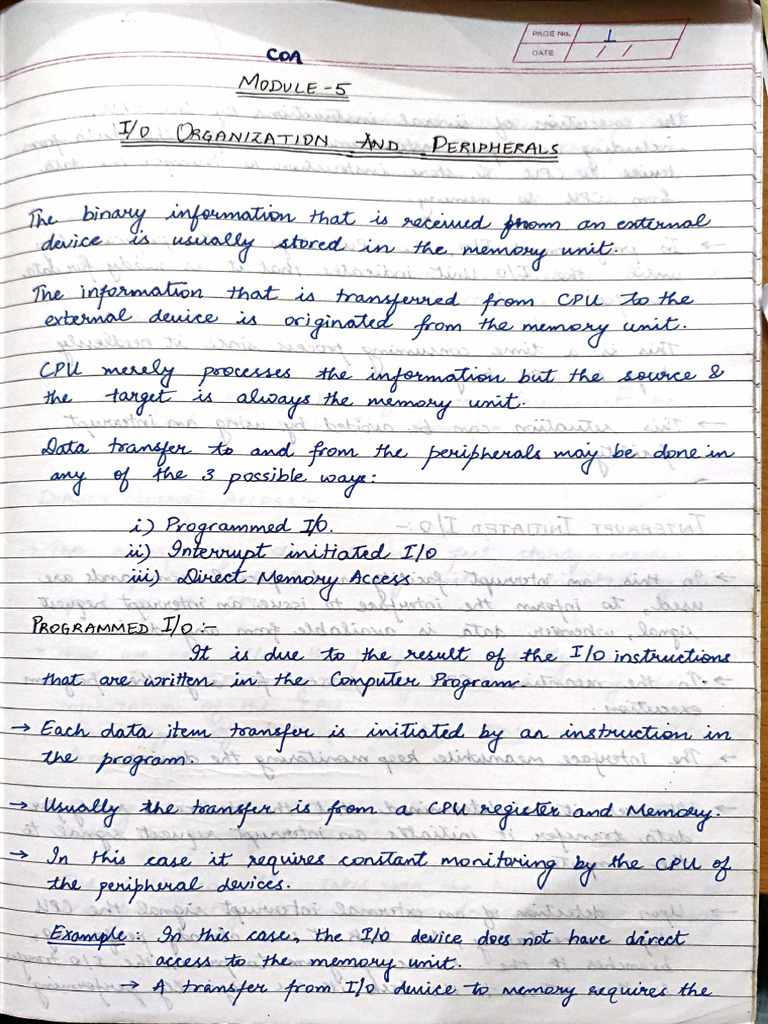 PAGE No. 1
DATE / /
COA
MODULE-5
I/O ORGANIZATION AND PERIPHERALS
The binary information that is received from an external
device is usually stored in the memory unit.
The information that is transferred from CPU to the
external device is originated from the memory unit.
CPU merely processes the information but the source &
the target is always the memory unit.
Data transfer to and from the peripherals may be done in
any of the 3 possible ways:
i) Programmed I/O.
ii) Interrupt initiated I/O
iii) Direct Memory Access
PROGRAMMED I/O :-
It is due to the result of the I/O instructions
that are written in the Computer Program.
→ Each data item transfer is initiated by an instruction in
the program.
→ Usually the transfer is from a CPU register and Memory.
→ In this case it requires constant monitoring by the CPU of
the peripheral devices.
Example : In this case, the I/O device does not have direct
access to the memory unit.
→ A transfer from I/O device to memory requires the